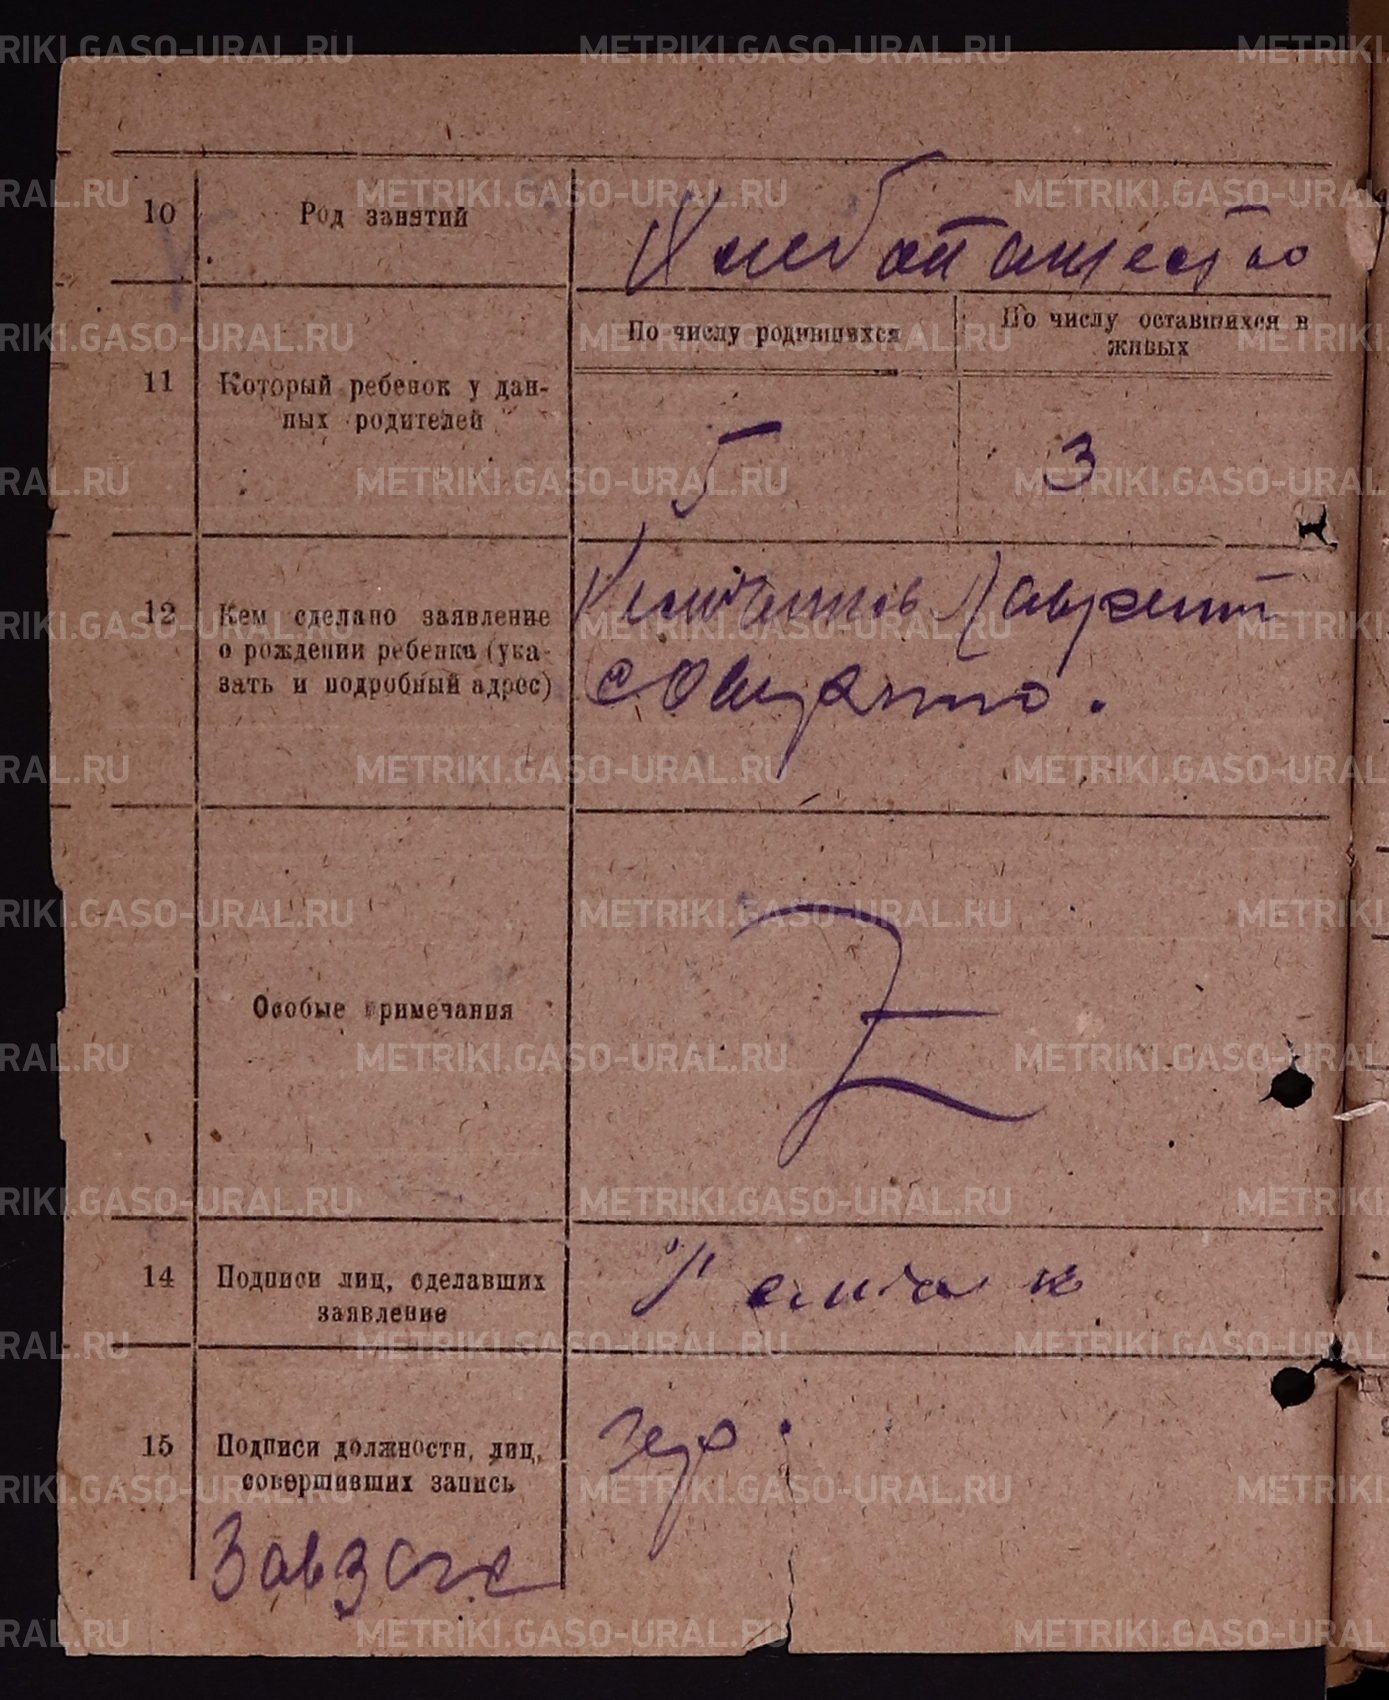 10 Род занятий Хлебопашество
По числу родившихся По числу оставшихся в живых
11 Который ребенок у данных родителей 5 3
12 Кем сделано заявление
о рождении ребенка (ука-
зать и подробный адрес)
Лаврент
Особые примечания Z
14 Подписи лиц, сделавших
заявление
15 Подписи должностн. лиц,
совершивших запись
Завзагс
METRIKI.GASO-URAL.RU